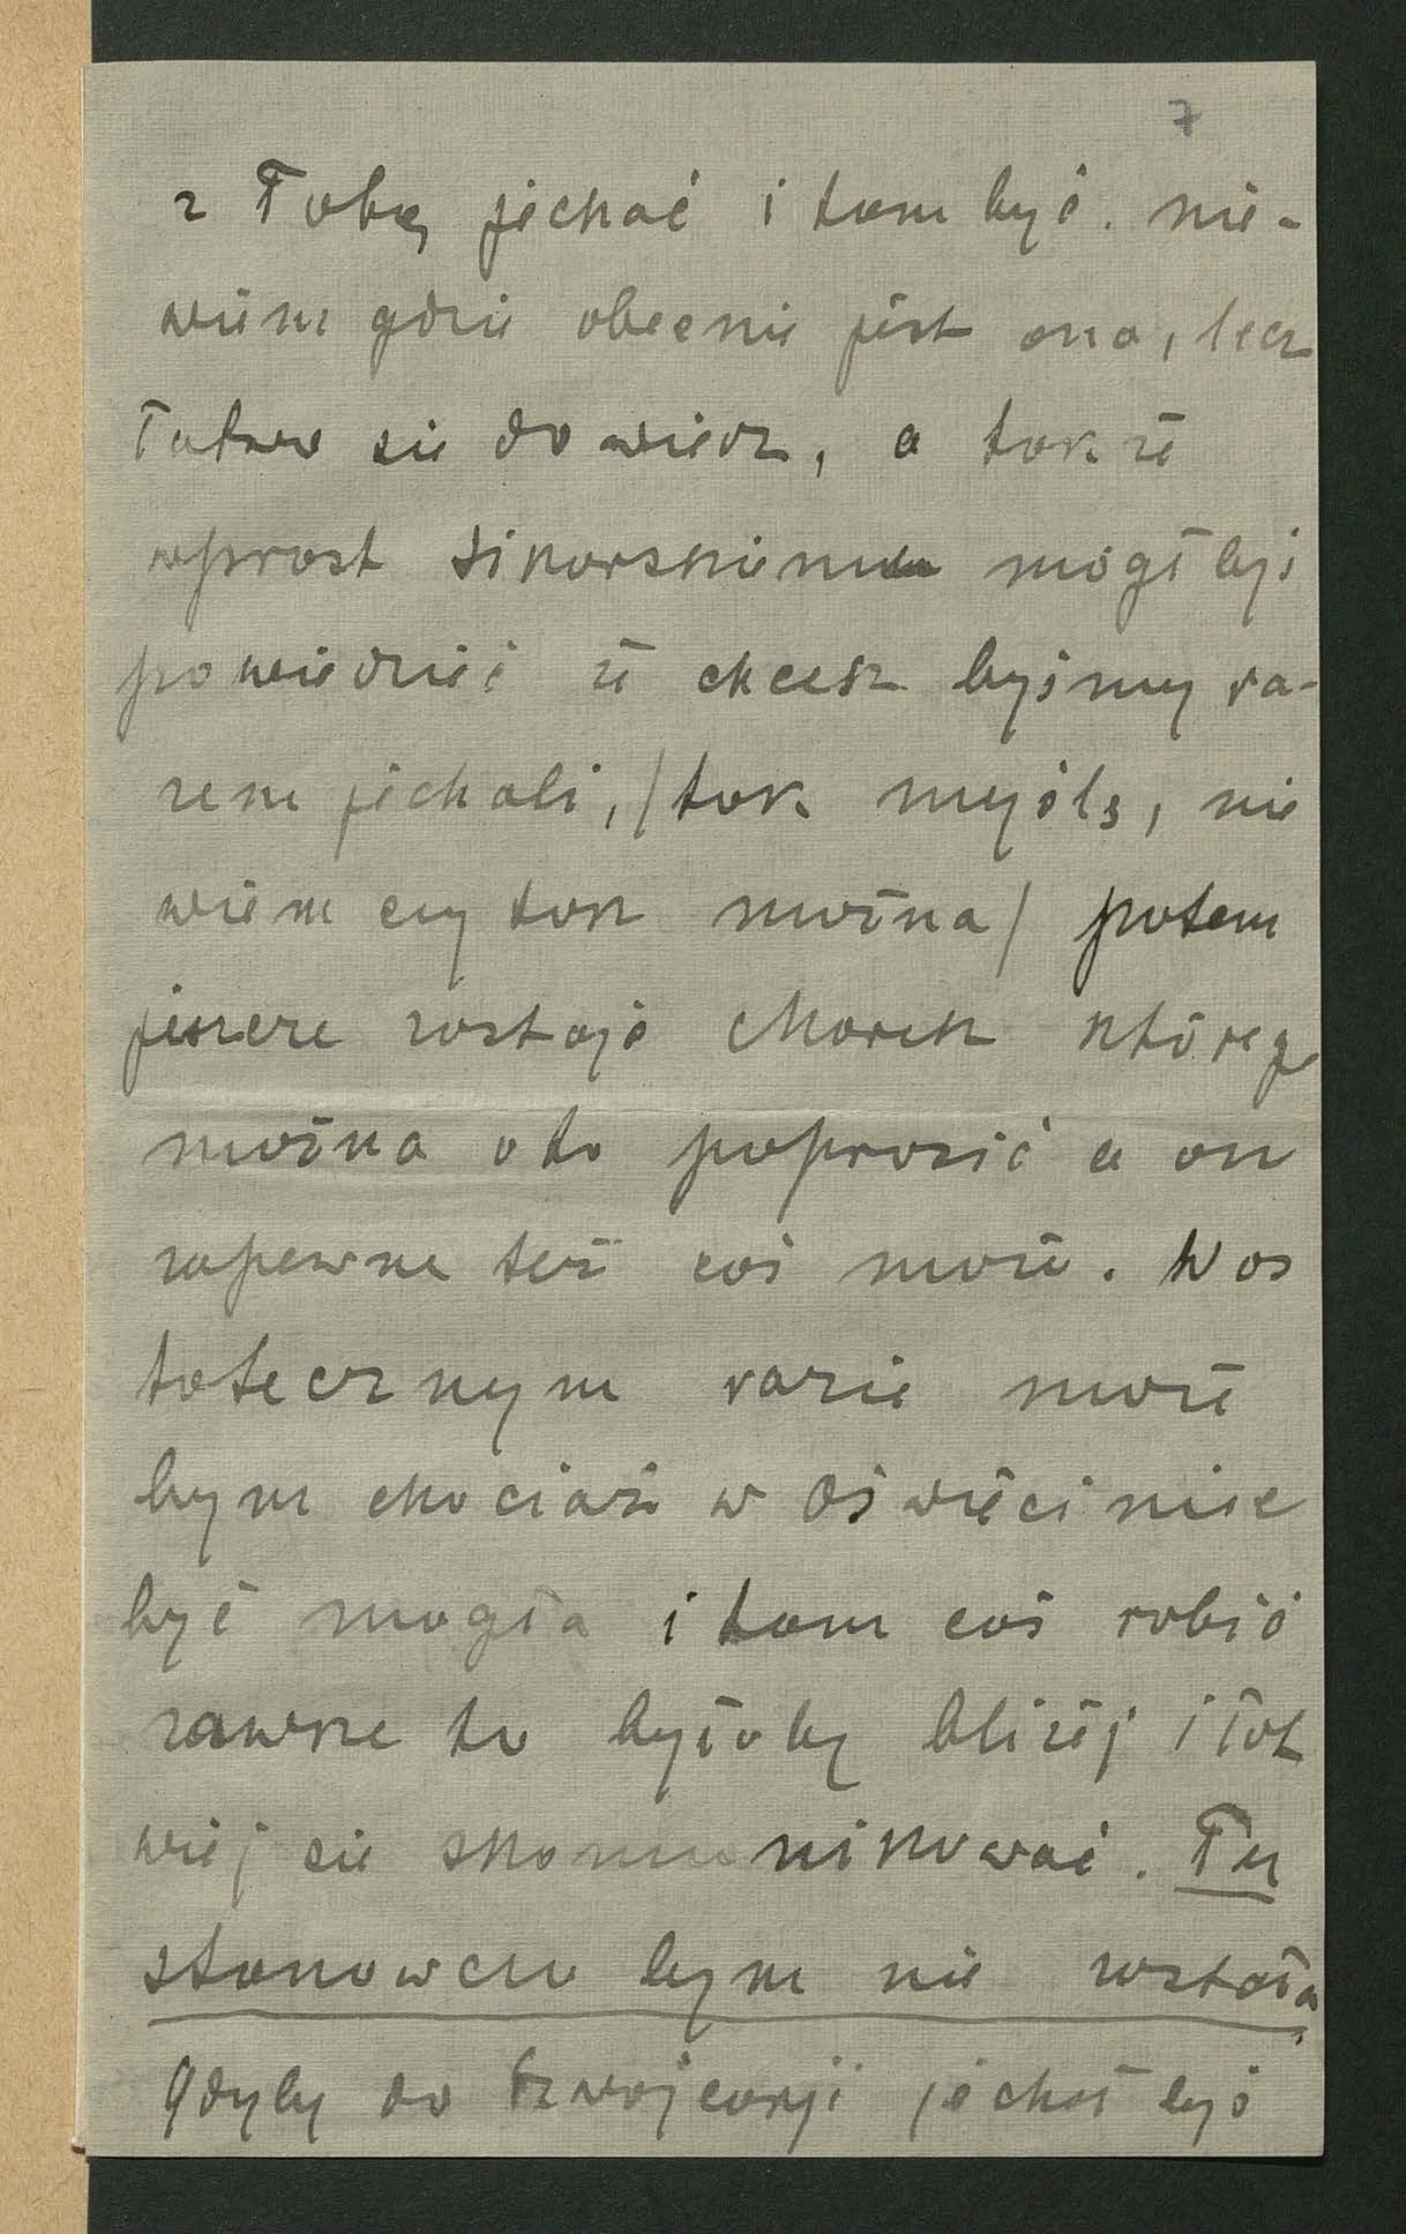 7
z Tobą jechać i tam być. nie-
wiem gdzie obecnie jest ona, lecz
łatwo się dowiedz, a także
wprost Sikorskiemu mógłbyś
powiedzieć że chcesz byśmy ra-
zem jechali, /tak myślę, nie
wiem czy tak można/ potem
jeszcze zostaje Marek którego
można oto poprosić a on
zapewne też coś może. W os
tatecznym razie może
bym chociaż w Oświęcimie
być mogła i tam coś robić
zawsze to byłoby bliżej i łat
wiej się skomunikować. Tu
stanowczo bym nie została,
gdyby do Szwajcarji jechałbyś